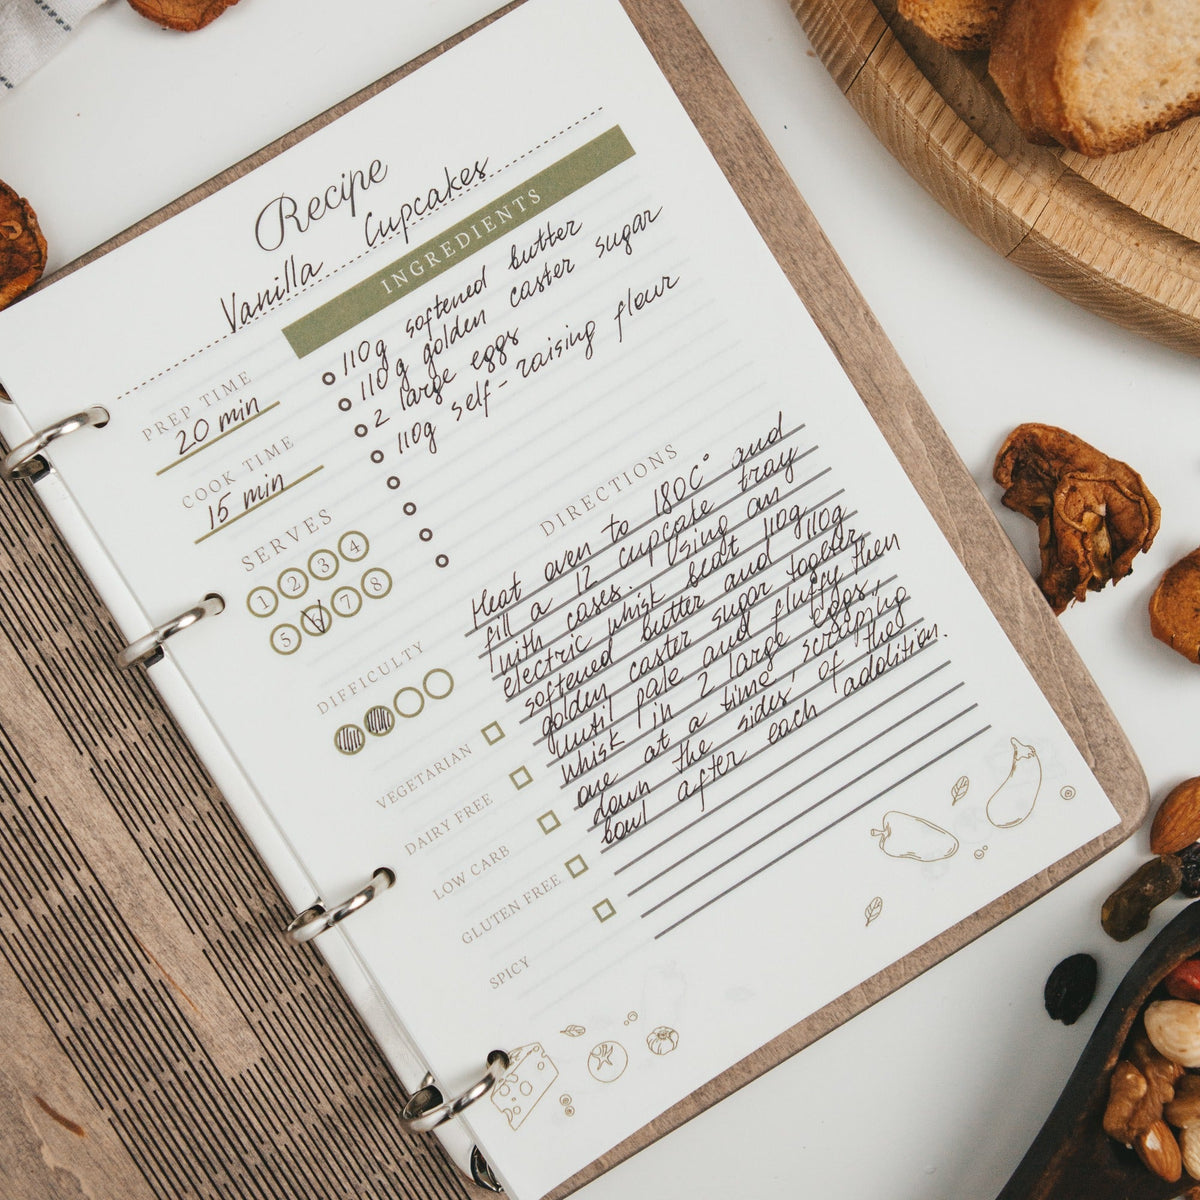 Recipe
Vanilla Cupcakes
INGREDIENTS
110g softened butter
110g golden caster sugar
2 large eggs
110g self-raising flour
PREP TIME
20 min
COOK TIME
15 min
SERVES
1 2 3 4
5 7 8
DIFFICULTY
VEGETARIAN
DAIRY FREE
LOW CARB
GLUTEN FREE
SPICY
DIRECTIONS
Heat oven to 180C° and
fill a 12 cupcake tray
with cases. Using an
electric whisk beat 110g
softened butter and 110g
golden caster sugar togetar
until pale and fluffy then
whisk in 2 large eggs,
one at a time, scrapping
down the sides of the
bowl after each addition.